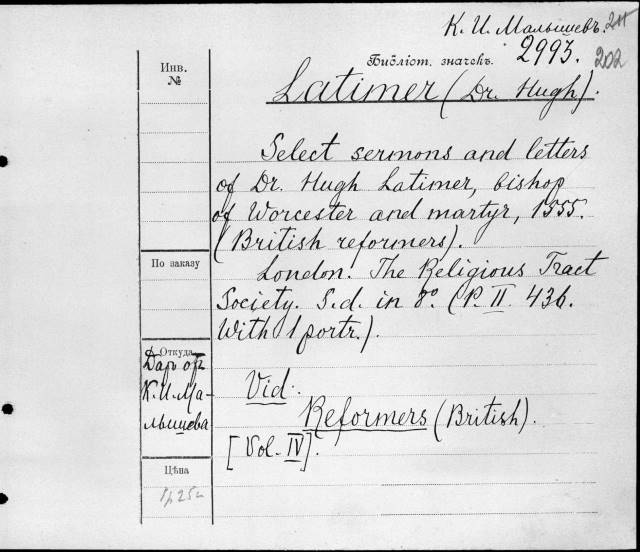 К. И. Малышевъ. 211
Библіот. значекъ. 2993. 202
Инв.
№
Latimer (Dr. Hugh).
Select sermons and letters
of Dr. Hugh Latimer, bishop
of Worcester and martyr, 1555.
(British reformers).
По заказу
London. The Religious Tract
Society. S.d. in 8º. (P. II. 436.
With 1 portr.).
Откуда
Даръ отъ
К. И. Ма-
лышева
Vid:
Reformers (British).
[Vol. IV].
Цѣна
1р 25к